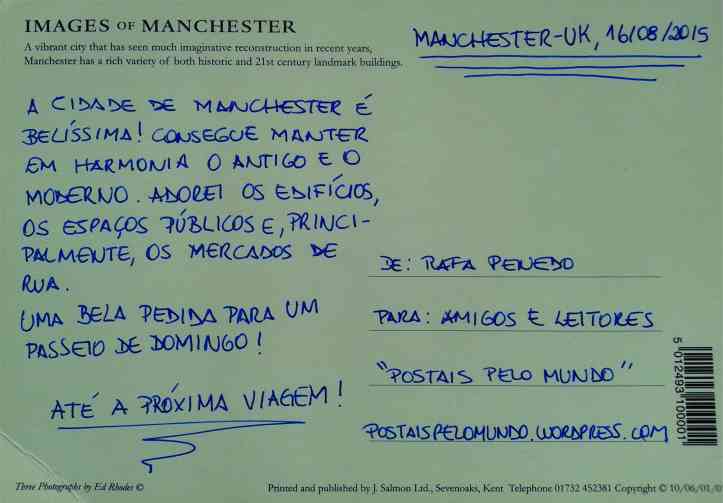 IMAGES OF MANCHESTER
A vibrant city that has seen much imaginative reconstruction in recent years,
Manchester has a rich variety of both historic and 21st century landmark buildings.
MANCHESTER-UK, 16/08/2015
A CIDADE DE MANCHESTER É
BELÍSSIMA! CONSEGUE MANTER
EM HARMONIA O ANTIGO E O
MODERNO. ADOREI OS EDIFÍCIOS,
OS ESPAÇOS PÚBLICOS E, PRINCI-
PALMENTE, OS MERCADOS DE
RUA.
UMA BELA PEDIDA PARA UM
PASSEIO DE DOMINGO!
ATÉ A PRÓXIMA VIAGEM!
DE: RAFA PENEDO
PARA: AMIGOS E LEITORES
"POSTAIS PELO MUNDO"
POSTAISPELOMUNDO.WORDPRESS.COM
5 012493 100001
Three Photographs by Ed Rhodes ©
Printed and published by J. Salmon Ltd., Sevenoaks, Kent Telephone 01732 452381 Copyright © 10/06/01/